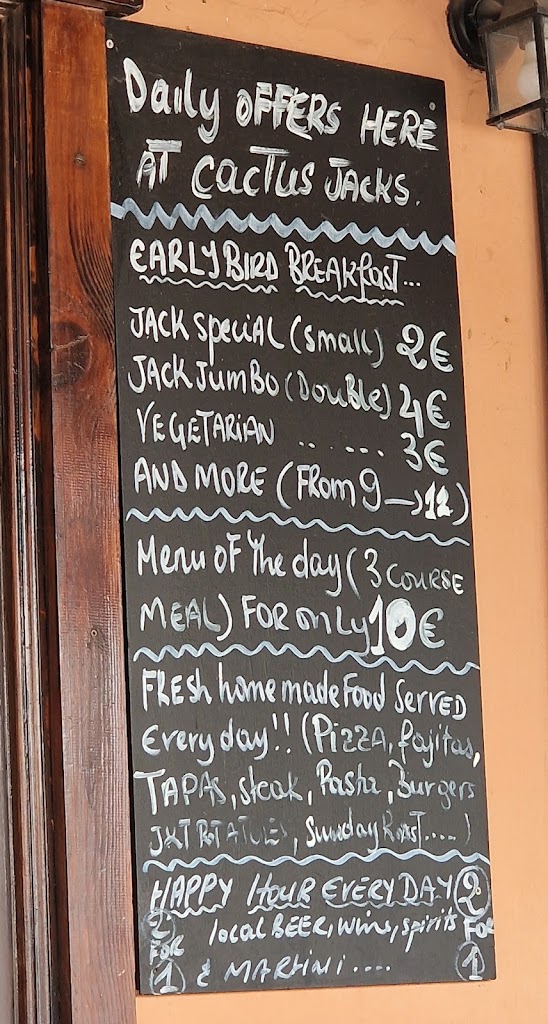 Daily OFFERS HERE
AT CACTUS JACKS.
EARLY BIRD BREAKFAST...
JACK SPECIAL (small) 2€
JACK JUMBO (Double) 4€
VEGETARIAN .. ... 3€
AND MORE (FROM 9 → 12)
Menu OF The day (3 COURSE
MEAL) FOR ONLY 10€
FRESH homemade Food SERVED
Every day!! (PIZZA, fajitas,
TAPAS, steak, Pasta, Burgers
JKT POTATOES, Sunday ROAST....)
HAPPY HOUR EVERY DAY
2 FOR 1
local BEER, wine, spirits
& MARTINI....
2 FOR 1